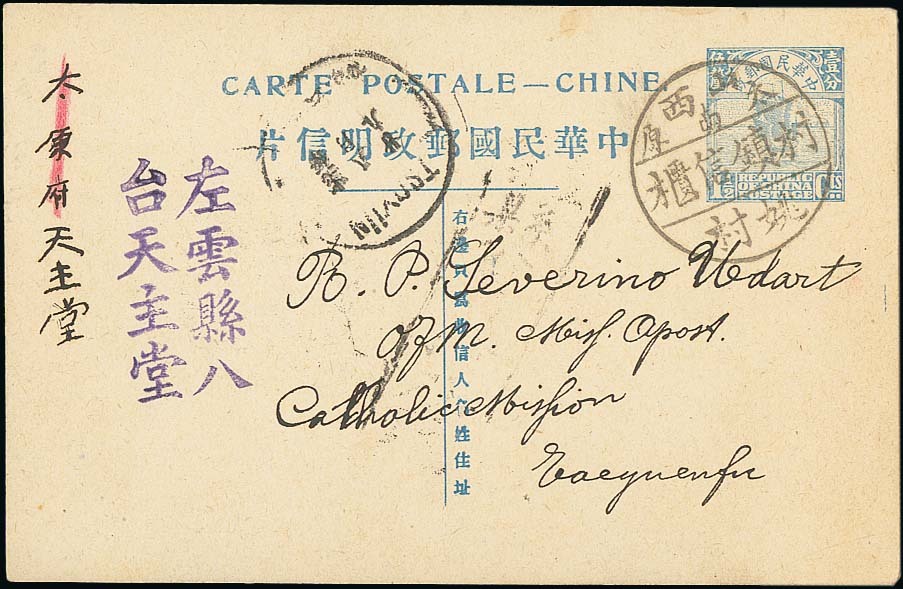 CARTE POSTALE—CHINE.
片信明政郵國民華中
中華民國郵
壹分
REPUBLIC
OF CHINA
POSTAGE
村鎮信櫃
姚村
TSOYÜN
右邊只寫收信人名姓住址
R. P. Severino Udart
ofm. Miss. Apost.
Catholic Mission
Taeyuenfu
左雲縣八
台天主堂
太原府天主堂